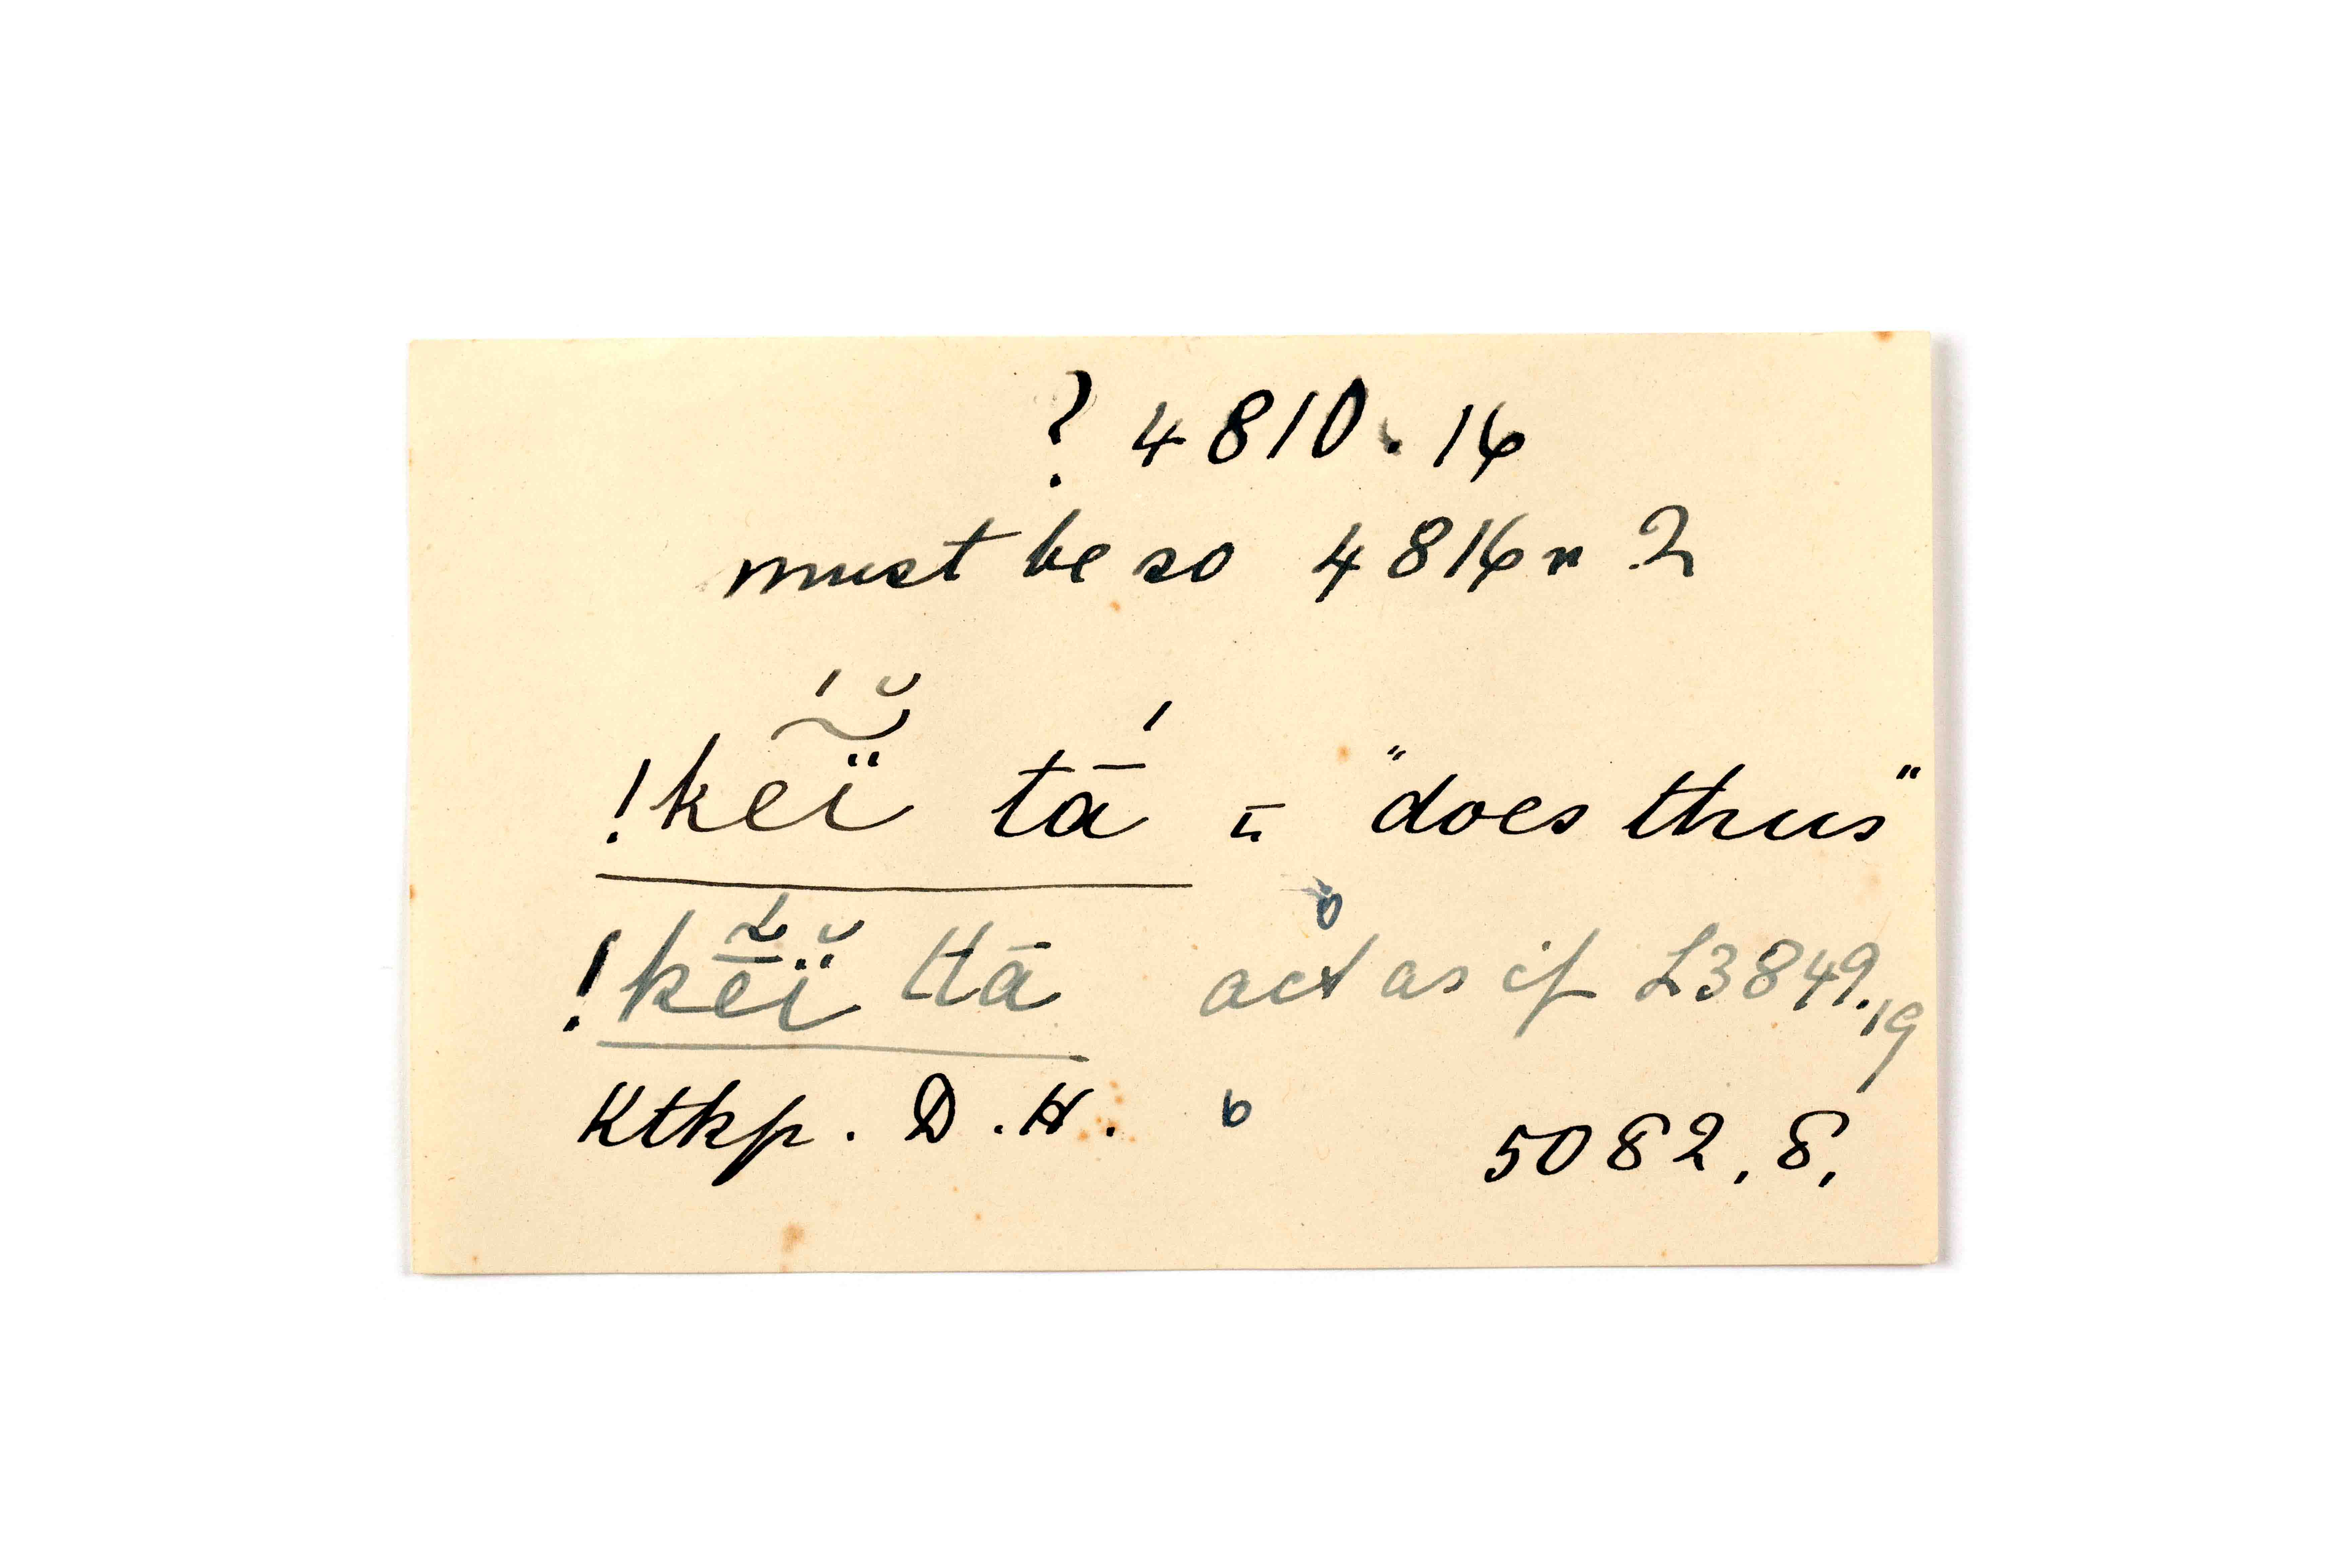 ? 4810.16
must be so 4816 n 2
!kéĭ tā́ = "does thus"
!kḗĭ ttā act as if L3849.19
Ktkp. D.H. b 5082.8.